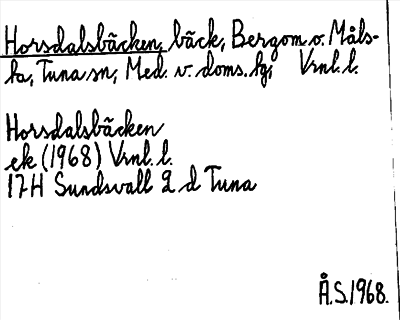 Horsdalsbäcken, bäck, Bergom o. Måls-
ta, Tuna sn, Med. v. doms. fg, Vrnl. l.
Horsdalsbäcken
ek (1968) Vrnl. l.
17H Sundsvall 2 d Tuna
Å.S. 1968.